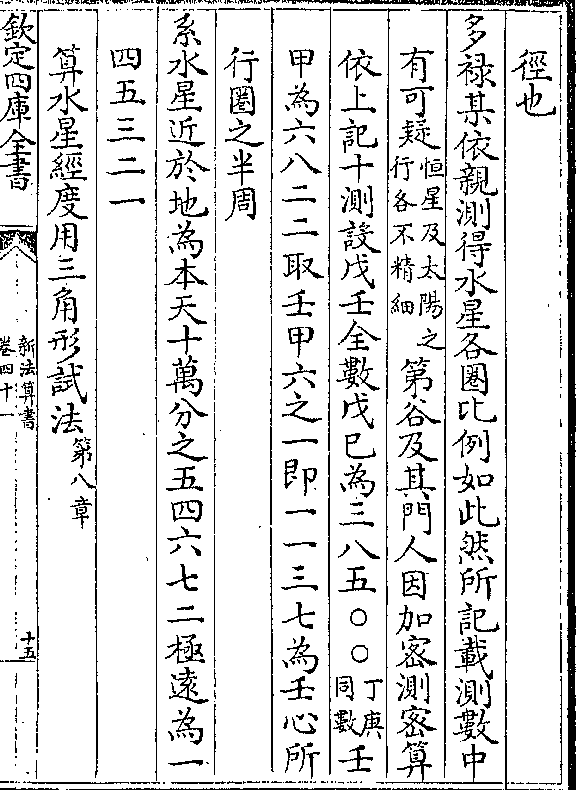 徑也
多祿某依親測得水星各圈比例如此然所記載測數中
有可疑恒星及太陽之行各不精細第谷及其門人因加密測密算
依上記十測設戊壬全數戊巳為三八五〇〇丁庚同數壬
甲為六八二二取壬甲六之一即一一三七為壬心所
行圈之半周
系水星近於地為本天十萬分之五四六七二極遠為一
四五三二一
算水星經度用三角形試法第八章
欽定四庫全書
新法算書
卷四十一
十五